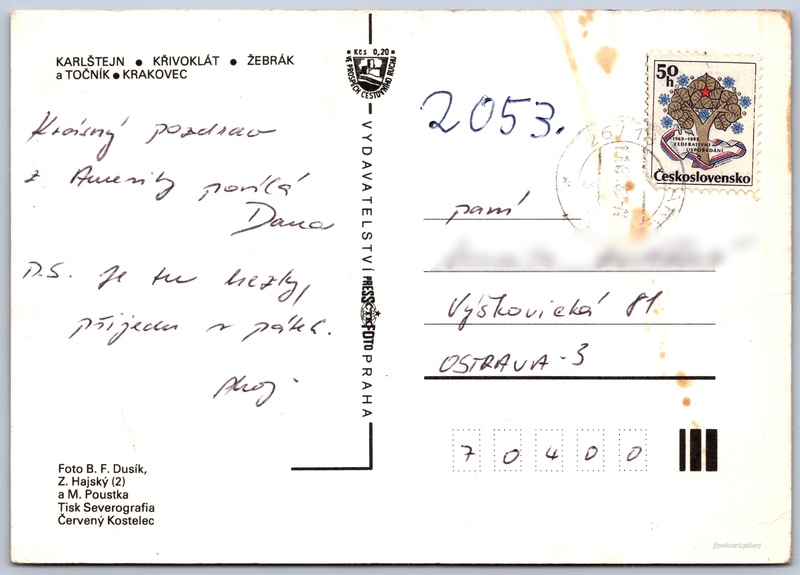 KARLŠTEJN ● KŘIVOKLÁT ● ŽEBRÁK
a TOČNÍK ● KRAKOVEC
Krásný pozdrav
z Ameriky posílá
Dana
P.S. Je tu hezky,
přijedu v pátek.
Ahoj
Foto B. F. Dusík,
Z. Hajský (2)
a M. Poustka
Tisk Severografia
Červený Kostelec
Kčs 0,20
VE PROSPĚCH CESTOVNÍHO RUCHU
VYDAVATELSTVÍ PRESSFOTO PRAHA
ČTK
2053.
50 h
1968-1988
FEDERATIVNÍ
USPOŘÁDÁNÍ
Československo
paní
Výškovická 81
OSTRAVA-3
70400
postcard.gallery